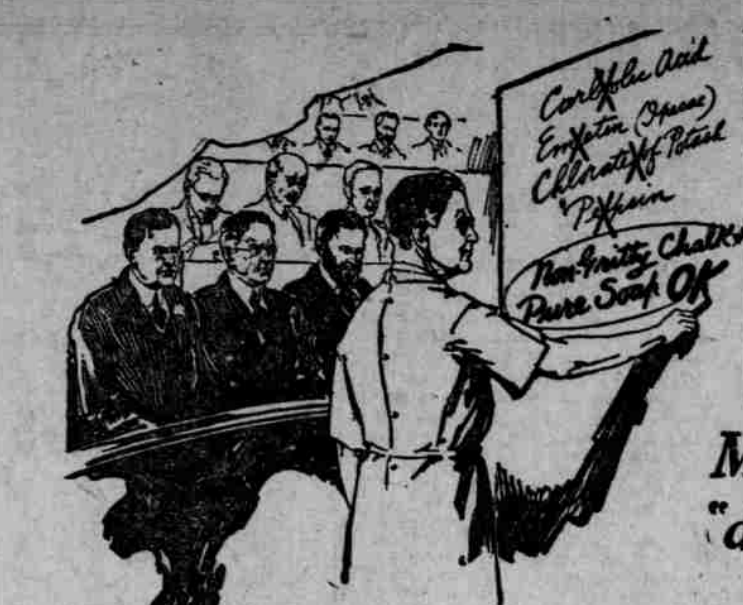 Carbolic Acid
Emetin (Ipecac)
Chlorate of Potash
Pepsin
Non-Gritty Chalk &
Pure Soap OK
M
"a